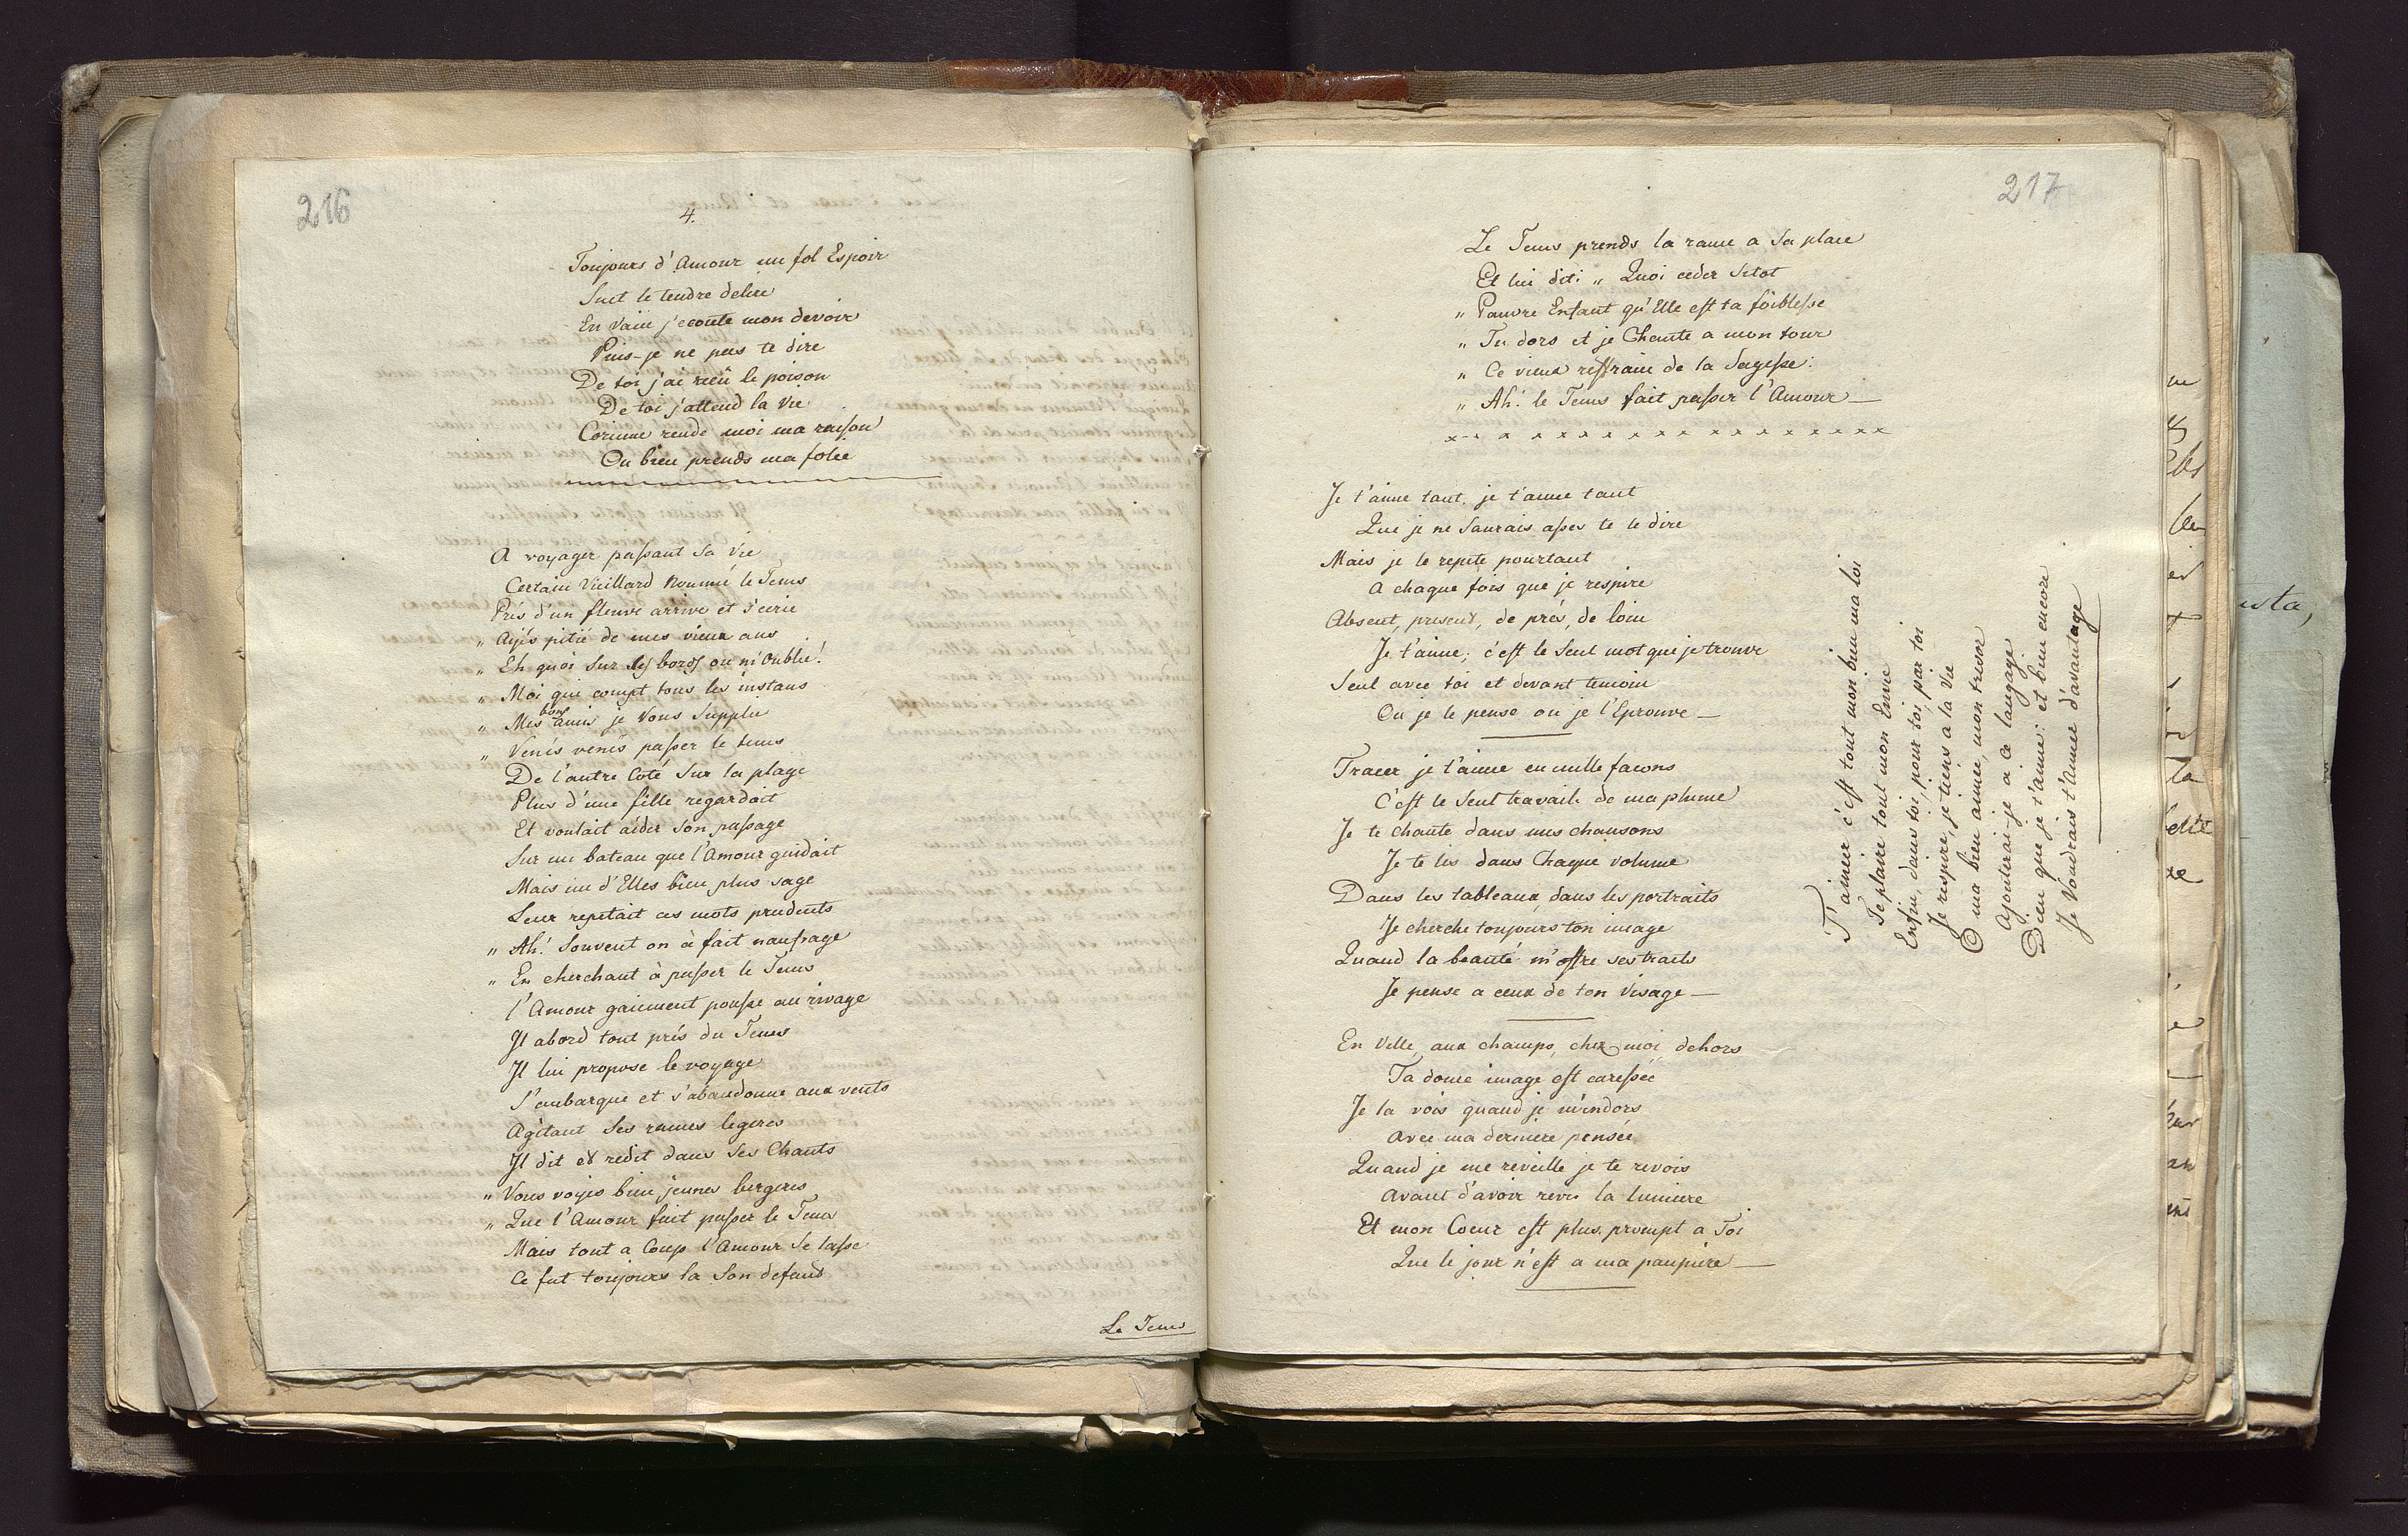 216
4.
Toujours d'Amour un fol Espoir
Suit le tendre delire
En vain j'ecoute mon devoir
Puis-je ne pas te dire
De toi j'ai recû le poison
De toi j'attend la vie
Corinne rends moi ma raison
Ou bien prends ma folie
A voyager passant sa vie
Certain Vieillard Nommé le Tems
Prés d'un fleuve arrive et s'ecrie
„ Ayés pitié de mes vieux ans
„ Eh quoi sur ces bords on m'oublie!
„ Moi qui compt tous les instans
„ Mes bons amis je vous supplie
„ Venés venés passer le tems
De l'autre Coté sur la plage
Plus d'une fille regardait
Et voulait aider son passage
Sur un bateau que l'Amour guidait
Mais une d'Elles bien plus sage
Leur repetait ces mots prudents
„ Ah! Souvent on à fait naufrage
„ En cherchant à passer le Tems
l'Amour gaiement pousse au rivage
Il abord tout prés du Tems
Il lui propose le voyage
S'embarque et s'abandonne aux vents
Agitant ses rames legeres
Il dit et redit dans ses Chants
„ Vous voyés bien jeunes bergeres
„ Que l'Amour fait passer le Tems
Mais tout a Coup l'Amour se lasse
Ce fut toujours la son defaud
Le Tems
217
Le Tems prends la rame a sa place
Et lui dit: „ Quoi ceder sitot
„ Pauvre Enfant qu'Elle est ta foiblesse
„ Tu dors et je Chante a mon tour
„ Ce vieux reffrain de la Sagesse:
„ Ah! le Tems fait passer l'Amour —
Je t'aime tant, je t'aime tant
Que je ne saurais asses te le dire
Mais je le repete pourtant
A chaque fois que je respire
Absent, present, de prés, de loin
Je t'aime; c'est le seul mot que je trouve
Seul avec toi et devant temoin
Ou je le pense ou je l'Eprouve —
Tracer je t'aime en mille facons
C'est le seul travail de ma plume
Je te chante dans mes chansons
Je te lis dans Chaque volume
Dans les tableaux, dans les portraits
Je cherche toujours ton image
Quand la beauté m'offre ses traits
Je pense a ceux de ton visage —
En Ville, aux champs, chez moi, dehors
Ta douce image est caressée
Je la vois quand je m'endors
Avec ma derniere pensée
Quand je me reveille je te revois
Avant d'avoir revu la lumiere
Et mon Coeur est plus prompt a Toi
Que le jour n'est a ma paupiere —
T'aimer c'est tout mon bien ma loi
Te plaire tout mon Envie
Enfin, dans toi, pour toi, par toi
Je respire, je tiens a la vie
O ma bien aimée, mon tresor
Ajouterai-je a ce langage
Dieu que je t'aime; et bien encore
Je Voudrais t'aimer d'avantage